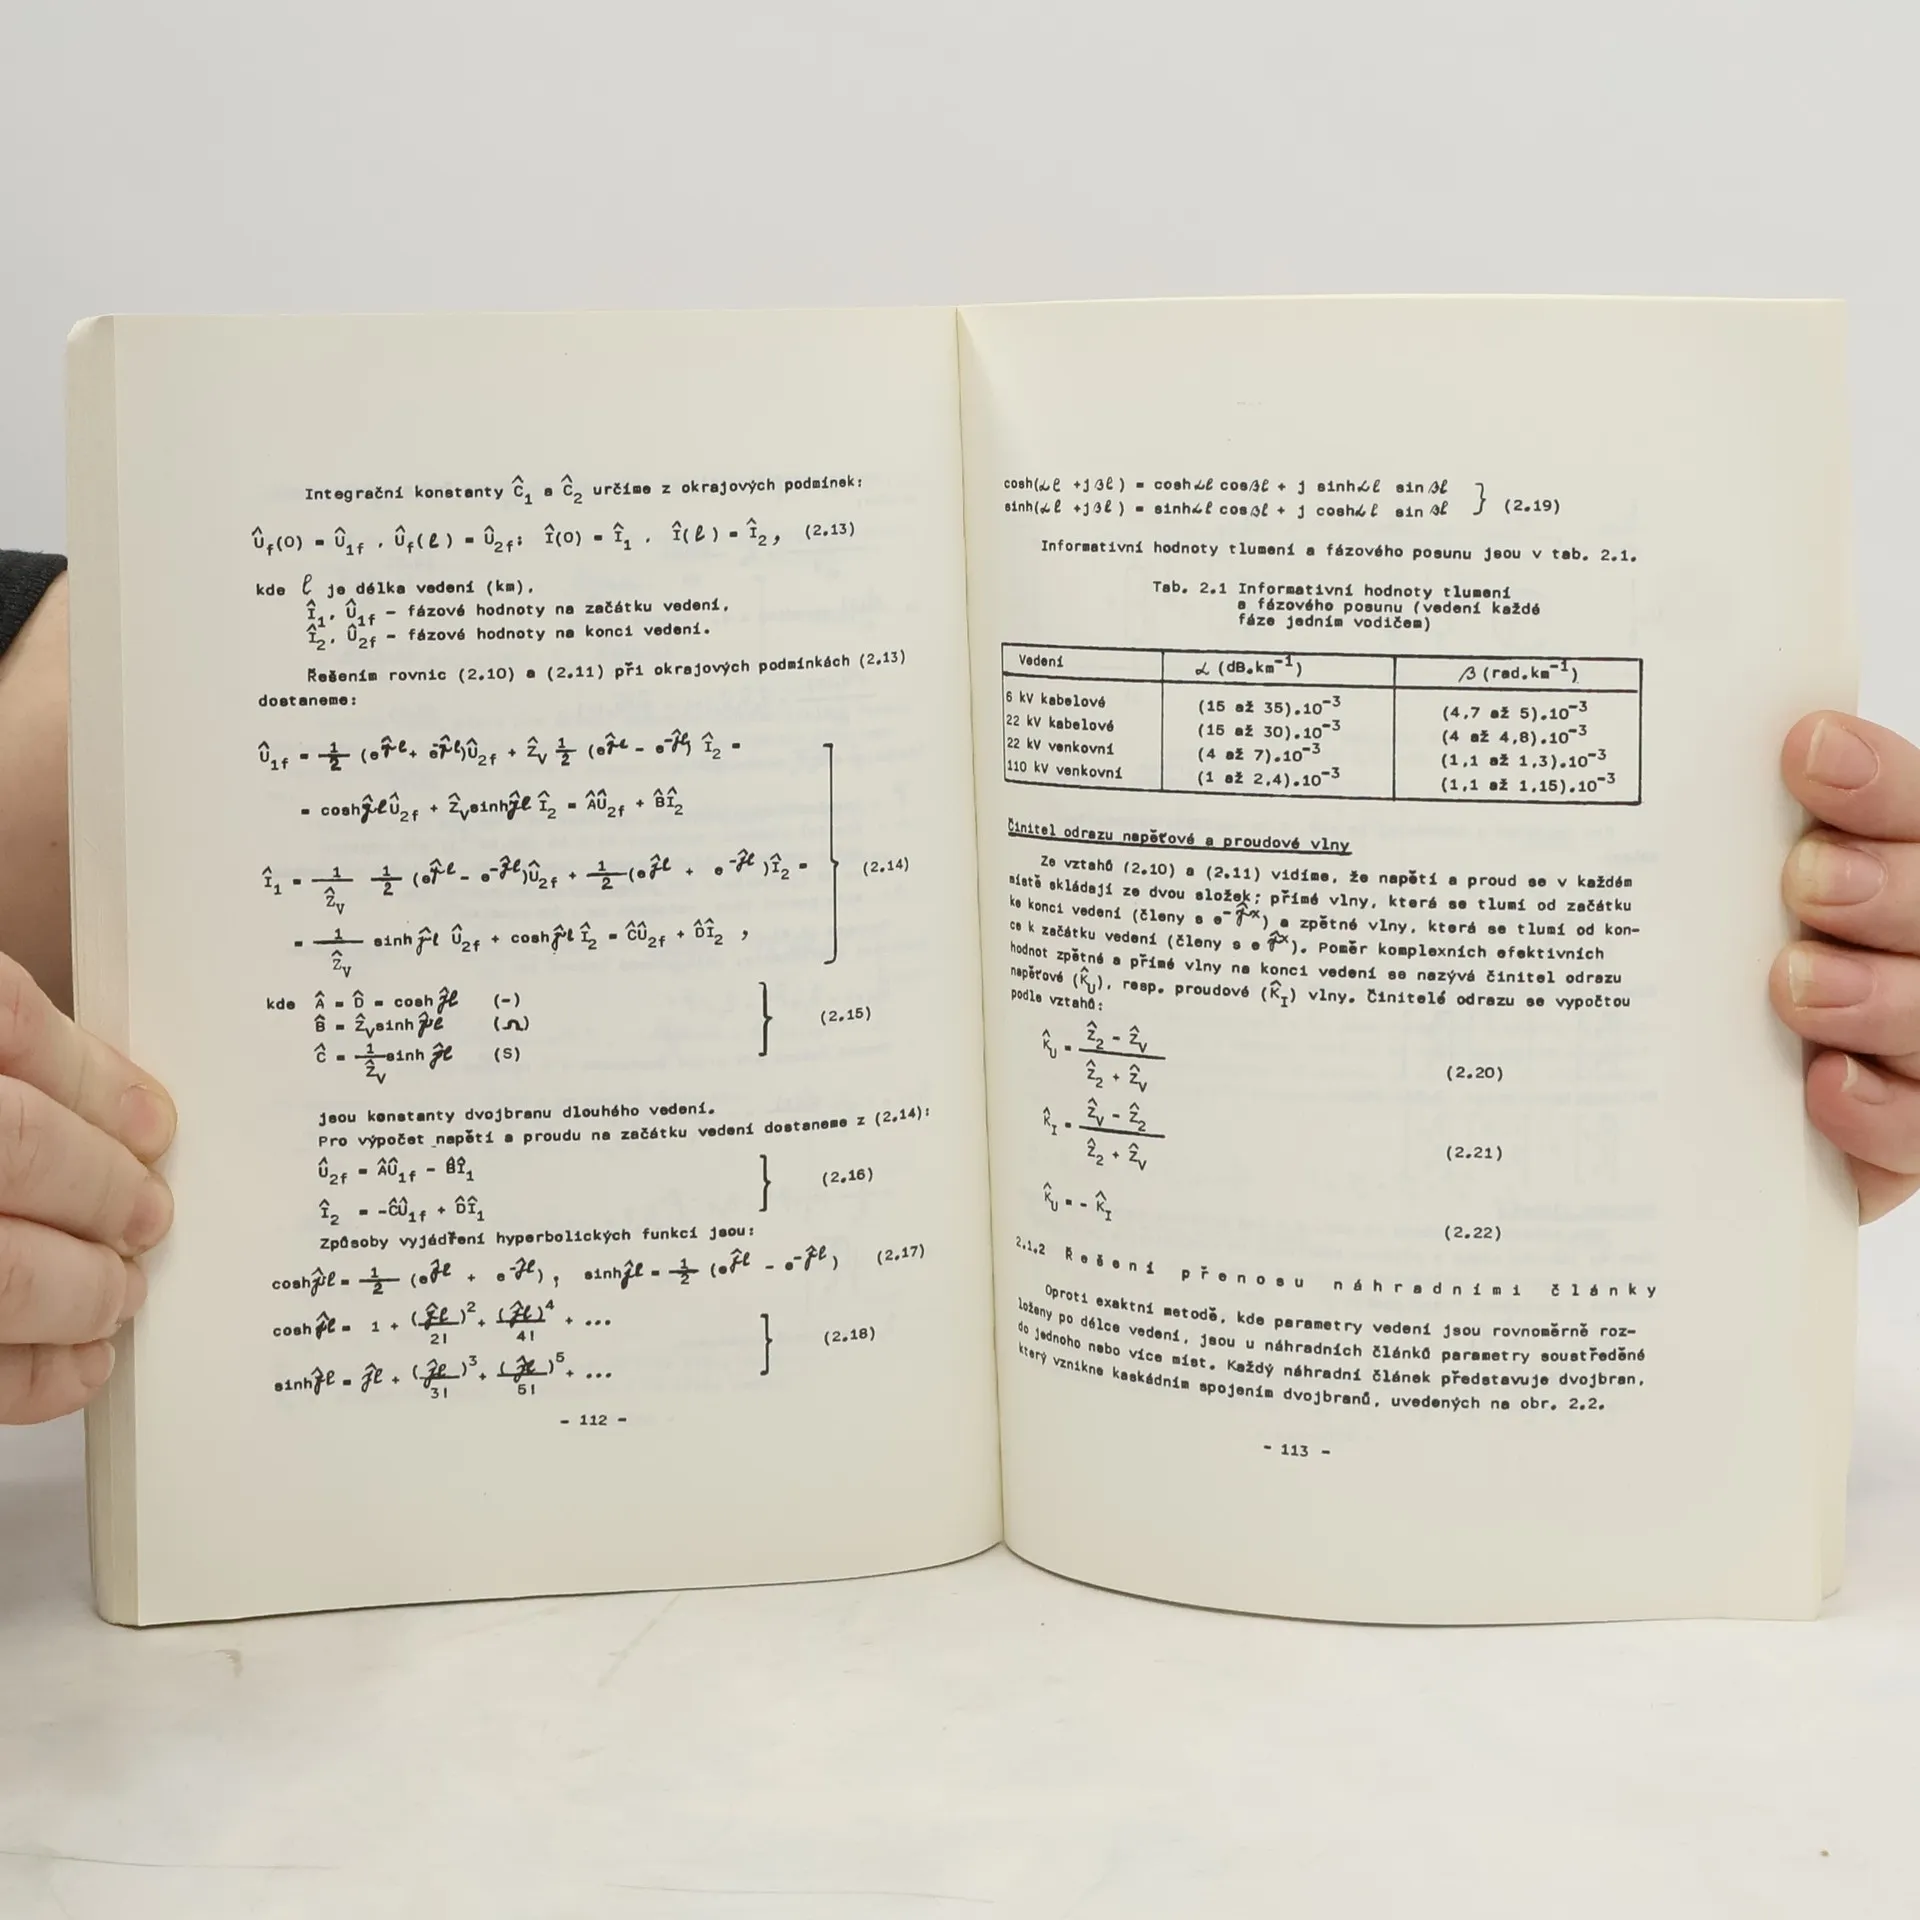 Integrační konstanty Ĉ₁ a Ĉ₂ určíme z okrajových podmínek:
Û_f(0) = Û_1f , Û_f(ℓ) = Û_2f; Î(0) = Î₁ , Î(ℓ) = Î₂, (2.13)
kde ℓ je délka vedení (km),
Î₁, Û_1f - fázové hodnoty na začátku vedení,
Î₂, Û_2f - fázové hodnoty na konci vedení.
Řešením rovnic (2.10) a (2.11) při okrajových podmínkách (2.13)
dostaneme:
Û_1f = 1/2 (e^γ̂ℓ + e^-γ̂ℓ)Û_2f + Ẑ_V 1/2 (e^γ̂ℓ - e^-γ̂ℓ) Î₂ =
= coshγ̂ℓÛ_2f + Ẑ_V sinhγ̂ℓ Î₂ = ÂÛ_2f + B̂Î₂
Î₁ = 1/Ẑ_V 1/2 (e^γ̂ℓ - e^-γ̂ℓ)Û_2f + 1/2 (e^γ̂ℓ + e^-γ̂ℓ)Î₂ = (2.14)
= 1/Ẑ_V sinh γ̂ℓ Û_2f + coshγ̂ℓ Î₂ = ĈÛ_2f + D̂Î₂ ,
kde Â = D̂ = cosh γ̂ℓ (-)
B̂ = Ẑ_V sinh γ̂ℓ (Ω) (2.15)
Ĉ = 1/Ẑ_V sinh γ̂ℓ (S)
jsou konstanty dvojbranu dlouhého vedení.
Pro výpočet napětí a proudu na začátku vedení dostaneme z (2.14):
Û_2f = ÂÛ_1f - B̂Î₁
(2.16)
Î₂ = -ĈÛ_1f + D̂Î₁
Způsoby vyjádření hyperbolických funkcí jsou:
coshγ̂ℓ = 1/2 (e^γ̂ℓ + e^-γ̂ℓ), sinhγ̂ℓ = 1/2 (e^γ̂ℓ - e^-γ̂ℓ) (2.17)
cosh γ̂ℓ = 1 + (γ̂ℓ)²/2! + (γ̂ℓ)⁴/4! + ...
(2.18)
sinhγ̂ℓ = γ̂ℓ + (γ̂ℓ)³/3! + (γ̂ℓ)⁵/5! + ...
- 112 -
cosh(αℓ +jβℓ) = coshαℓ cosβℓ + j sinhαℓ sin βℓ
sinh(αℓ +jβℓ) = sinhαℓ cosβℓ + j coshαℓ sin βℓ } (2.19)
Informativní hodnoty tlumení a fázového posunu jsou v tab. 2.1.
Tab. 2.1 Informativní hodnoty tlumení
a fázového posunu (vedení každé
fáze jedním vodičem)
Vedení α (dB.km⁻¹) β (rad.km⁻¹)
6 kV kabelové (15 až 35).10⁻³ (4,7 až 5).10⁻³
22 kV kabelové (15 až 30).10⁻³ (4 až 4,8).10⁻³
22 kV venkovní (4 až 7).10⁻³ (1,1 až 1,3).10⁻³
110 kV venkovní (1 až 2,4).10⁻³ (1,1 až 1,15).10⁻³
Činitel odrazu napěťové a proudové vlny
Ze vztahů (2.10) a (2.11) vidíme, že napětí a proud se v každém
místě skládají ze dvou složek; přímé vlny, která se tlumí od začátku
ke konci vedení (členy s e^-γ̂x) a zpětné vlny, která se tlumí od kon-
ce k začátku vedení (členy s e^γ̂x). Poměr komplexních efektivních
hodnot zpětné a přímé vlny na konci vedení se nazývá činitel odrazu
napěťové (K̂_U), resp. proudové (K̂_I) vlny. Činitelé odrazu se vypočtou
podle vztahů:
K̂_U = (Ẑ₂ - Ẑ_V)/(Ẑ₂ + Ẑ_V) (2.20)
K̂_I = (Ẑ_V - Ẑ₂)/(Ẑ₂ + Ẑ_V) (2.21)
K̂_U = - K̂_I
(2.22)
2.1.2 Řešení přenosu náhradními články
Oproti exaktní metodě, kde parametry vedení jsou rovnoměrně roz-
loženy po délce vedení, jsou u náhradních článků parametry soustředěné
do jednoho nebo více míst. Každý náhradní článek představuje dvojbran,
který vznikne kaskádním spojením dvojbranů, uvedených na obr. 2.2.
- 113 -